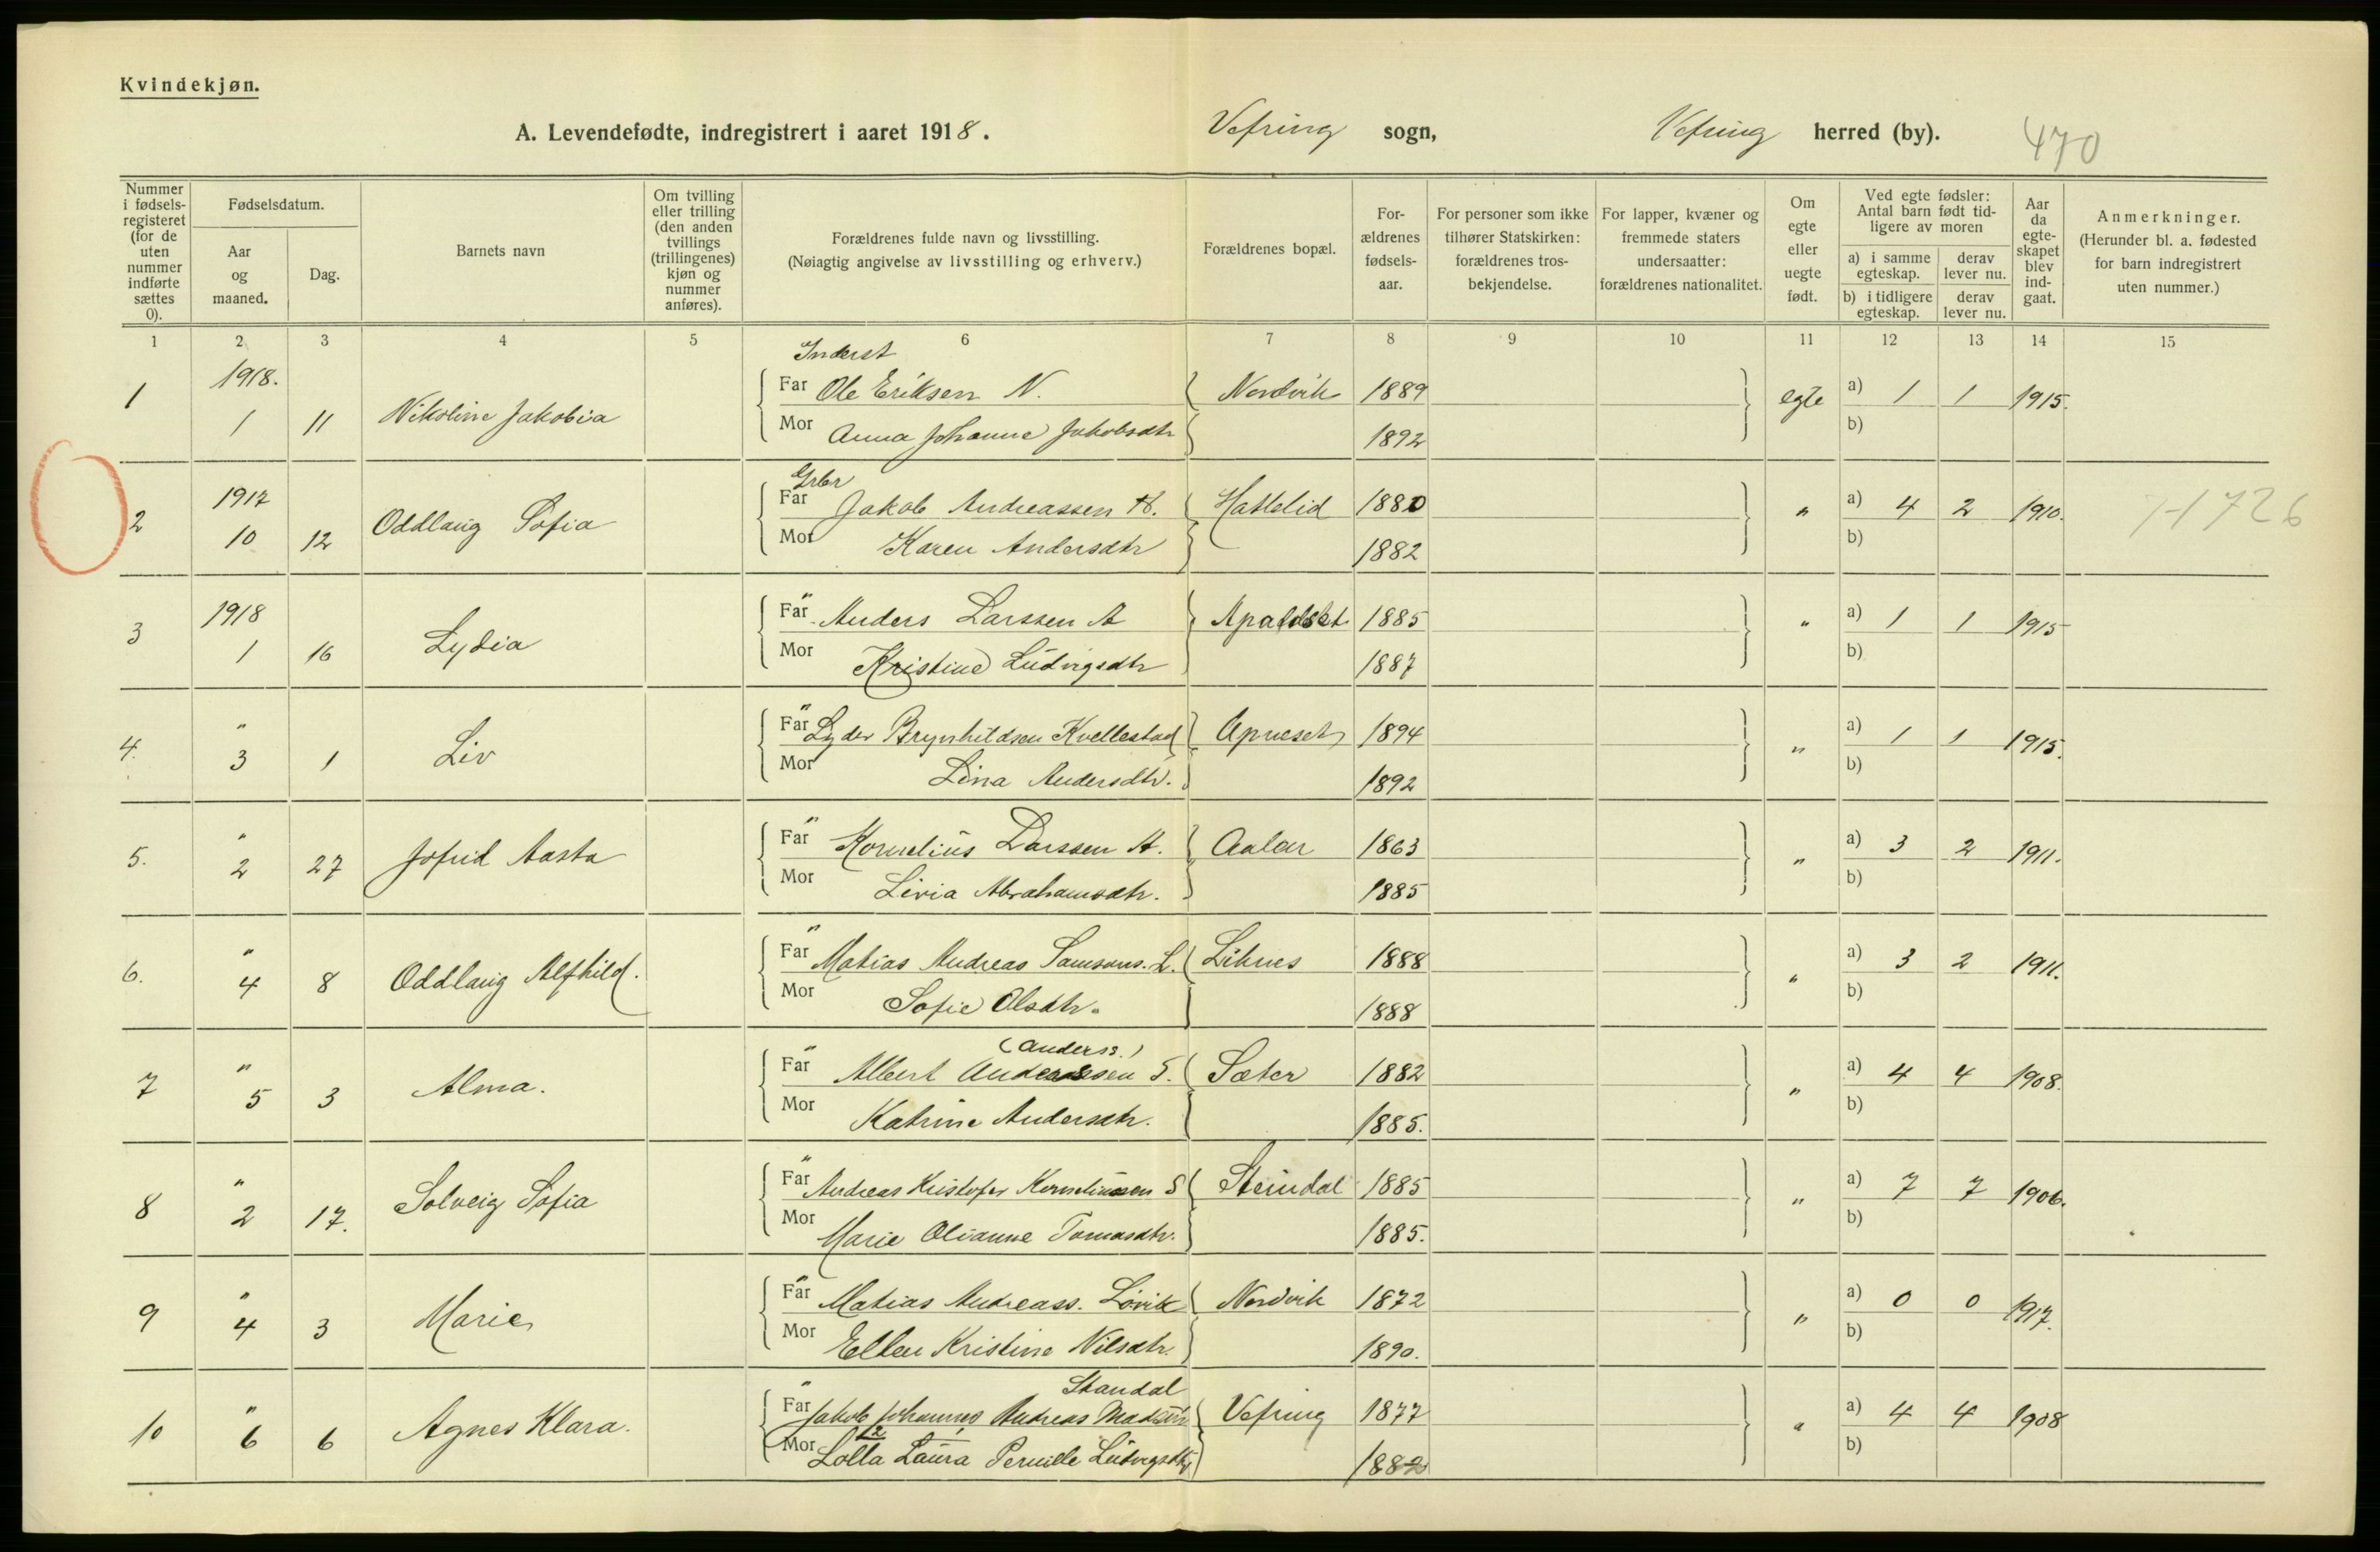 Kvindekjøn.
A. Levendefødte, indregistrert i aaret 1918. Vefring sogn, Vefring herred (by). 470
Nummer i fødsels-registeret (for de uten nummer indførte sættes 0).
Fødselsdatum.
Aar og maaned.
Dag.
Barnets navn
Om tvilling eller trilling (den anden tvillings (trillingenes) kjøn og nummer anføres).
Forældrenes fulde navn og livsstilling.
(Nøiagtig angivelse av livsstilling og erhverv.)
Forældrenes bopæl.
For-ældrenes fødsels-aar.
For personer som ikke tilhører Statskirken: forældrenes tros-bekjendelse.
For lapper, kvæner og fremmede staters undersaatter: forældrenes nationalitet.
Om egte eller uegte født.
Ved egte fødsler: Antal barn født tid-ligere av moren
a) i samme egteskap.
derav lever nu.
b) i tidligere egteskap.
derav lever nu.
Aar da egte-skapet blev ind-gaat.
Anmerkninger.
(Herunder bl. a. fødested for barn indregistrert uten nummer.)
1 2 3 4 5 6 7 8 9 10 11 12 13 14 15
Inderst
1 1918. 1 11 Nikoline Jakobia Far Ole Eriksen N. Nordvik 1889 egte a) 1 1 1915.
Mor Anna Johanne Jakobsdtr 1892 b)
Grbr
2 1917 10 12 Oddlaug Sofia Far Jakob Andreassen H. Hattelid 1880 " a) 4 2 1910. 7-1726
Mor Karen Andersdtr 1882 b)
3 1918 1 16 Lydia Far " Anders Larssen A Apaldset 1885 " a) 1 1 1915
Mor Kristine Ludvigsdtr 1887 b)
4. " 3 1 Liv Far " Lyder Brynhildsen Kvellestad Apneset 1894 " a) 1 1 1915.
Mor Lina Andersdtr. 1892 b)
5. " 2 27 Jofrid Aasta Far " Kornelius Larssen A. Aalen 1863 " a) 3 2 1911.
Mor Livia Abrahamsdtr. 1885 b)
6. " 4 8 Oddlaug Alfhild. Far " Matias Andreas Samsons. L. Liknes 1888 " a) 3 2 1911.
Mor Sofie Olsdtr. 1888 b)
(Anderss.)
7 " 5 3 Alma. Far " Albert Anderssen S. Sæter 1882 " a) 4 4 1908.
Mor Katrine Andersdtr. 1885. b)
8 " 2 17. Solveig Sofia Far " Andreas Kristofer Korneliussen S Steindal 1885 " a) 7 7 1906.
Mor Marie Olianne Tomasdtr. 1885. b)
9 " 4 3 Marie Far " Matias Andreass. Lövik Nordvik 1872 " a) 0 0 1917.
Mor Ellen Kristine Nilsdtr. 1890. b)
Standal
10 " 6 6 Agnes Klara. Far " Jakob Johannes Andreas Madsen Vefring 1877 " a) 4 4 1908
Mor Lolla Laura Pernille Ludvigsdtr 1882 b)